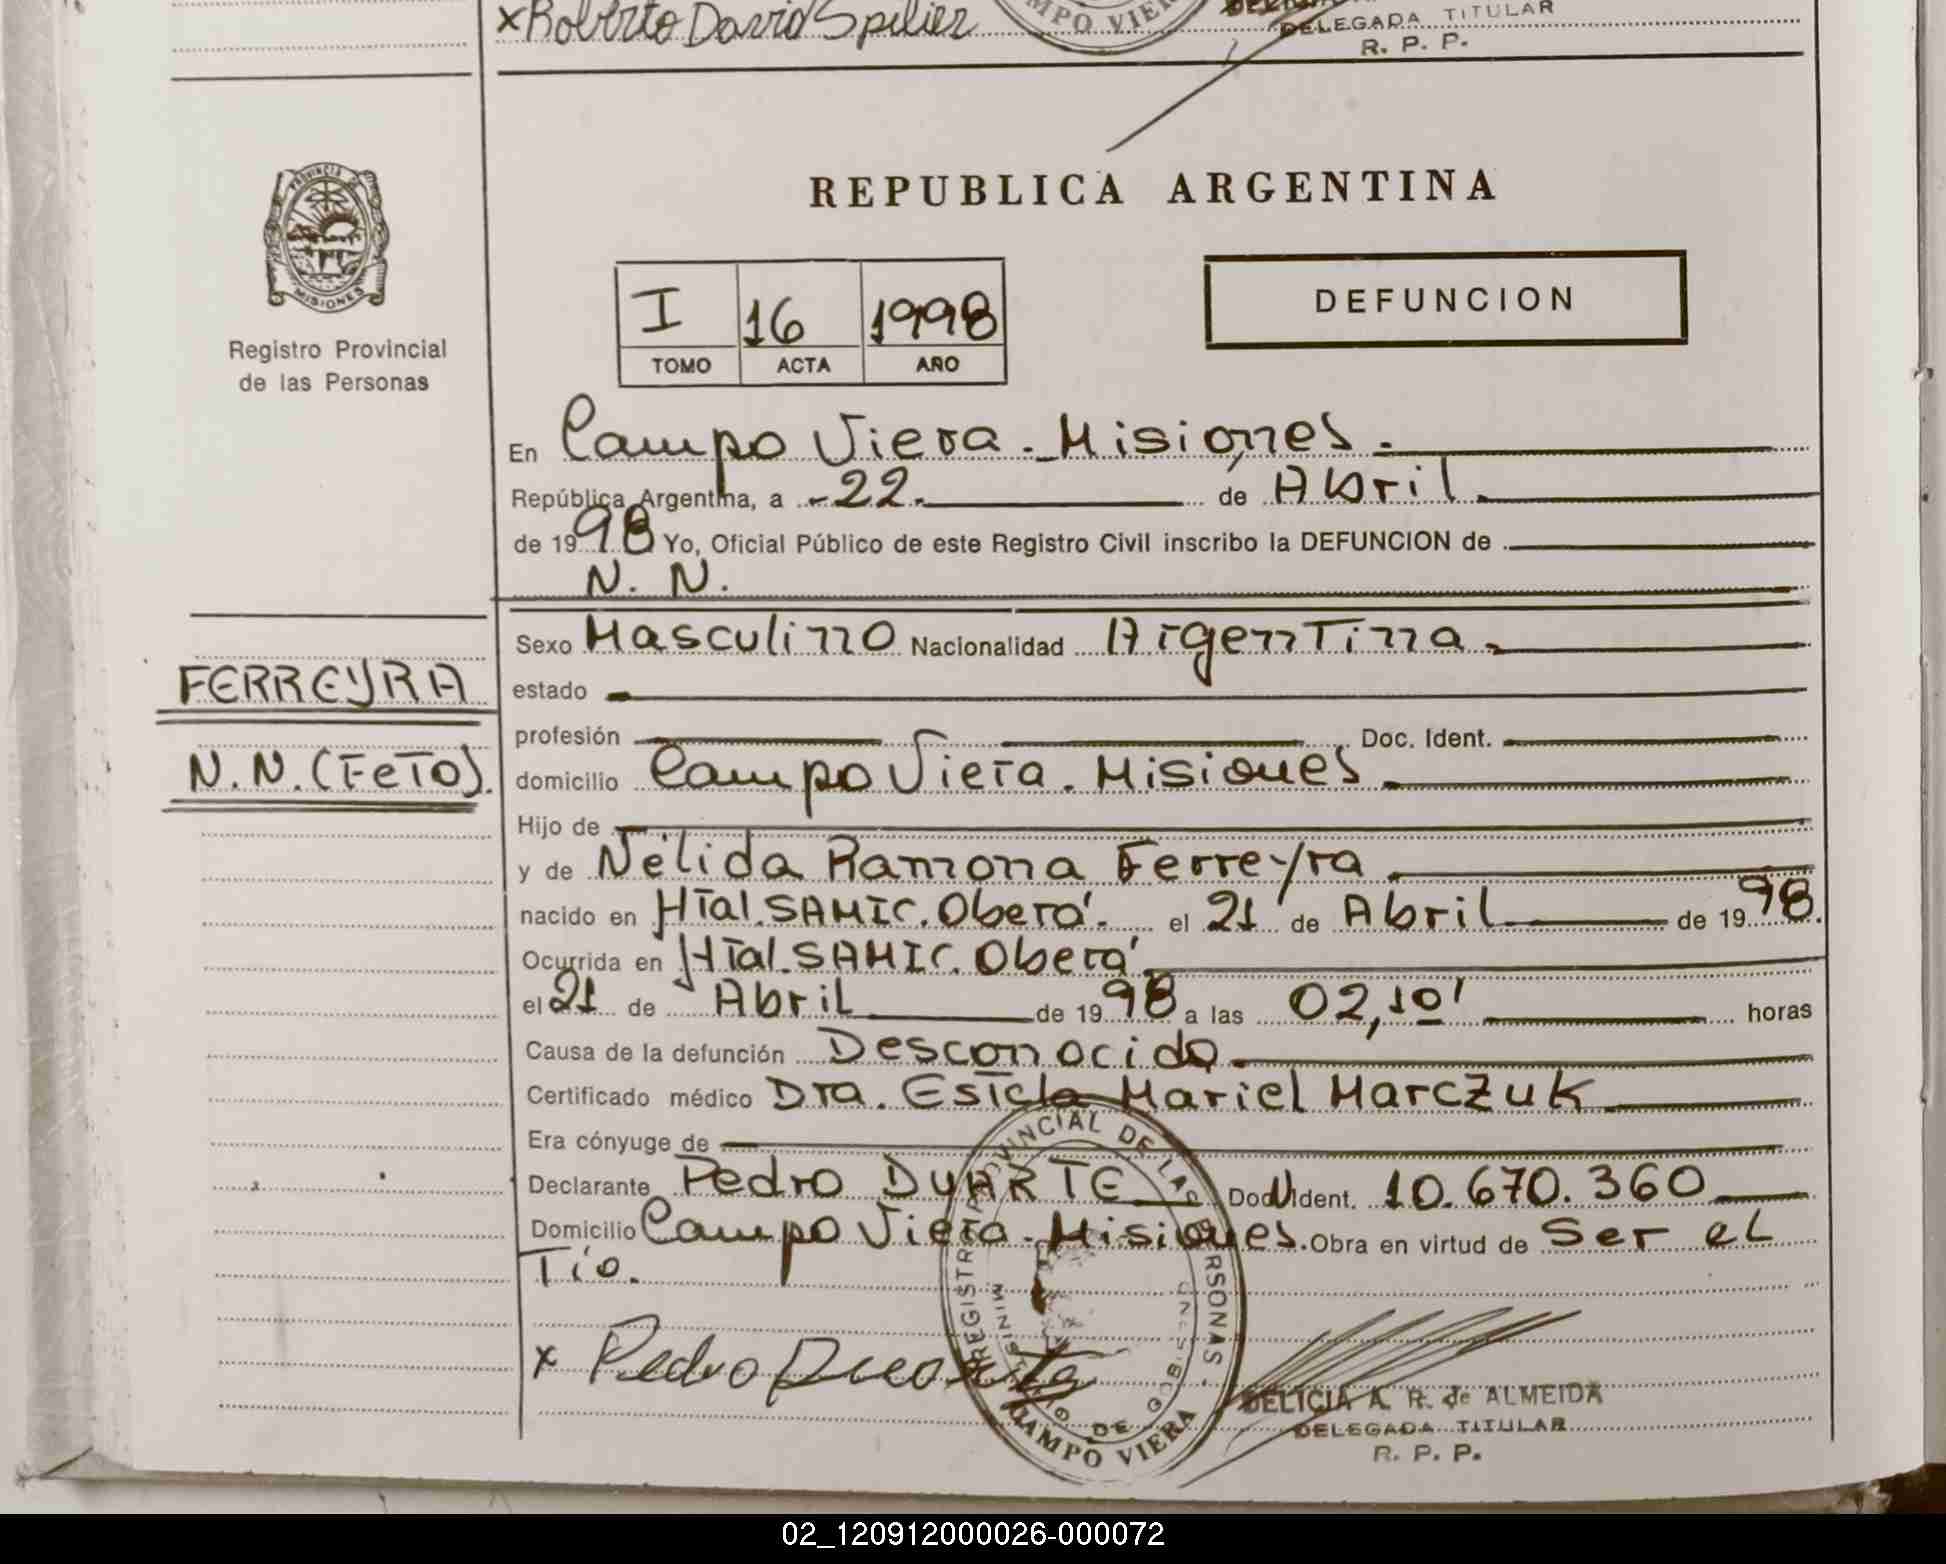 x Roberto David Spilier
CAMPO VIERA
DELEGADA TITULAR
R. P. P.
PROVINCIA DE
MISIONES
Registro Provincial
de las Personas
REPUBLICA ARGENTINA
I 16 1998
TOMO ACTA AÑO
DEFUNCION
En Campo Viera - Misiones.
República Argentina, a - 22. de Abril
de 1998 Yo, Oficial Público de este Registro Civil inscribo la DEFUNCION de
N. N.
Sexo Masculino Nacionalidad Argentina
FERREYRA
N.N. (FeTo).
estado
profesión Doc. Ident.
domicilio Campo Viera. Misiones
Hijo de
y de Nélida Ramona Ferreyra
nacido en HTal. SAMIC. Oberá. el 21 de Abril de 1998.
Ocurrida en HTal. SAMIC. Oberá
el 21 de Abril de 1998 a las 02,10' horas
Causa de la defunción Desconocida
Certificado médico Dra. Estela Mariel Marczuk
Era cónyuge de
Declarante Pedro DUARTE Doc. Ident. 10.670.360
Domicilio Campo Viera - Misiones. Obra en virtud de Ser el
Tío.
x Pedro Duarte
REGISTRO PROVINCIAL DE LAS PERSONAS
MINISTERIO DE GOBIERNO
CAMPO VIERA
DELICIA A. R. de ALMEIDA
DELEGADA TITULAR
R. P. P.
02_120912000026-000072